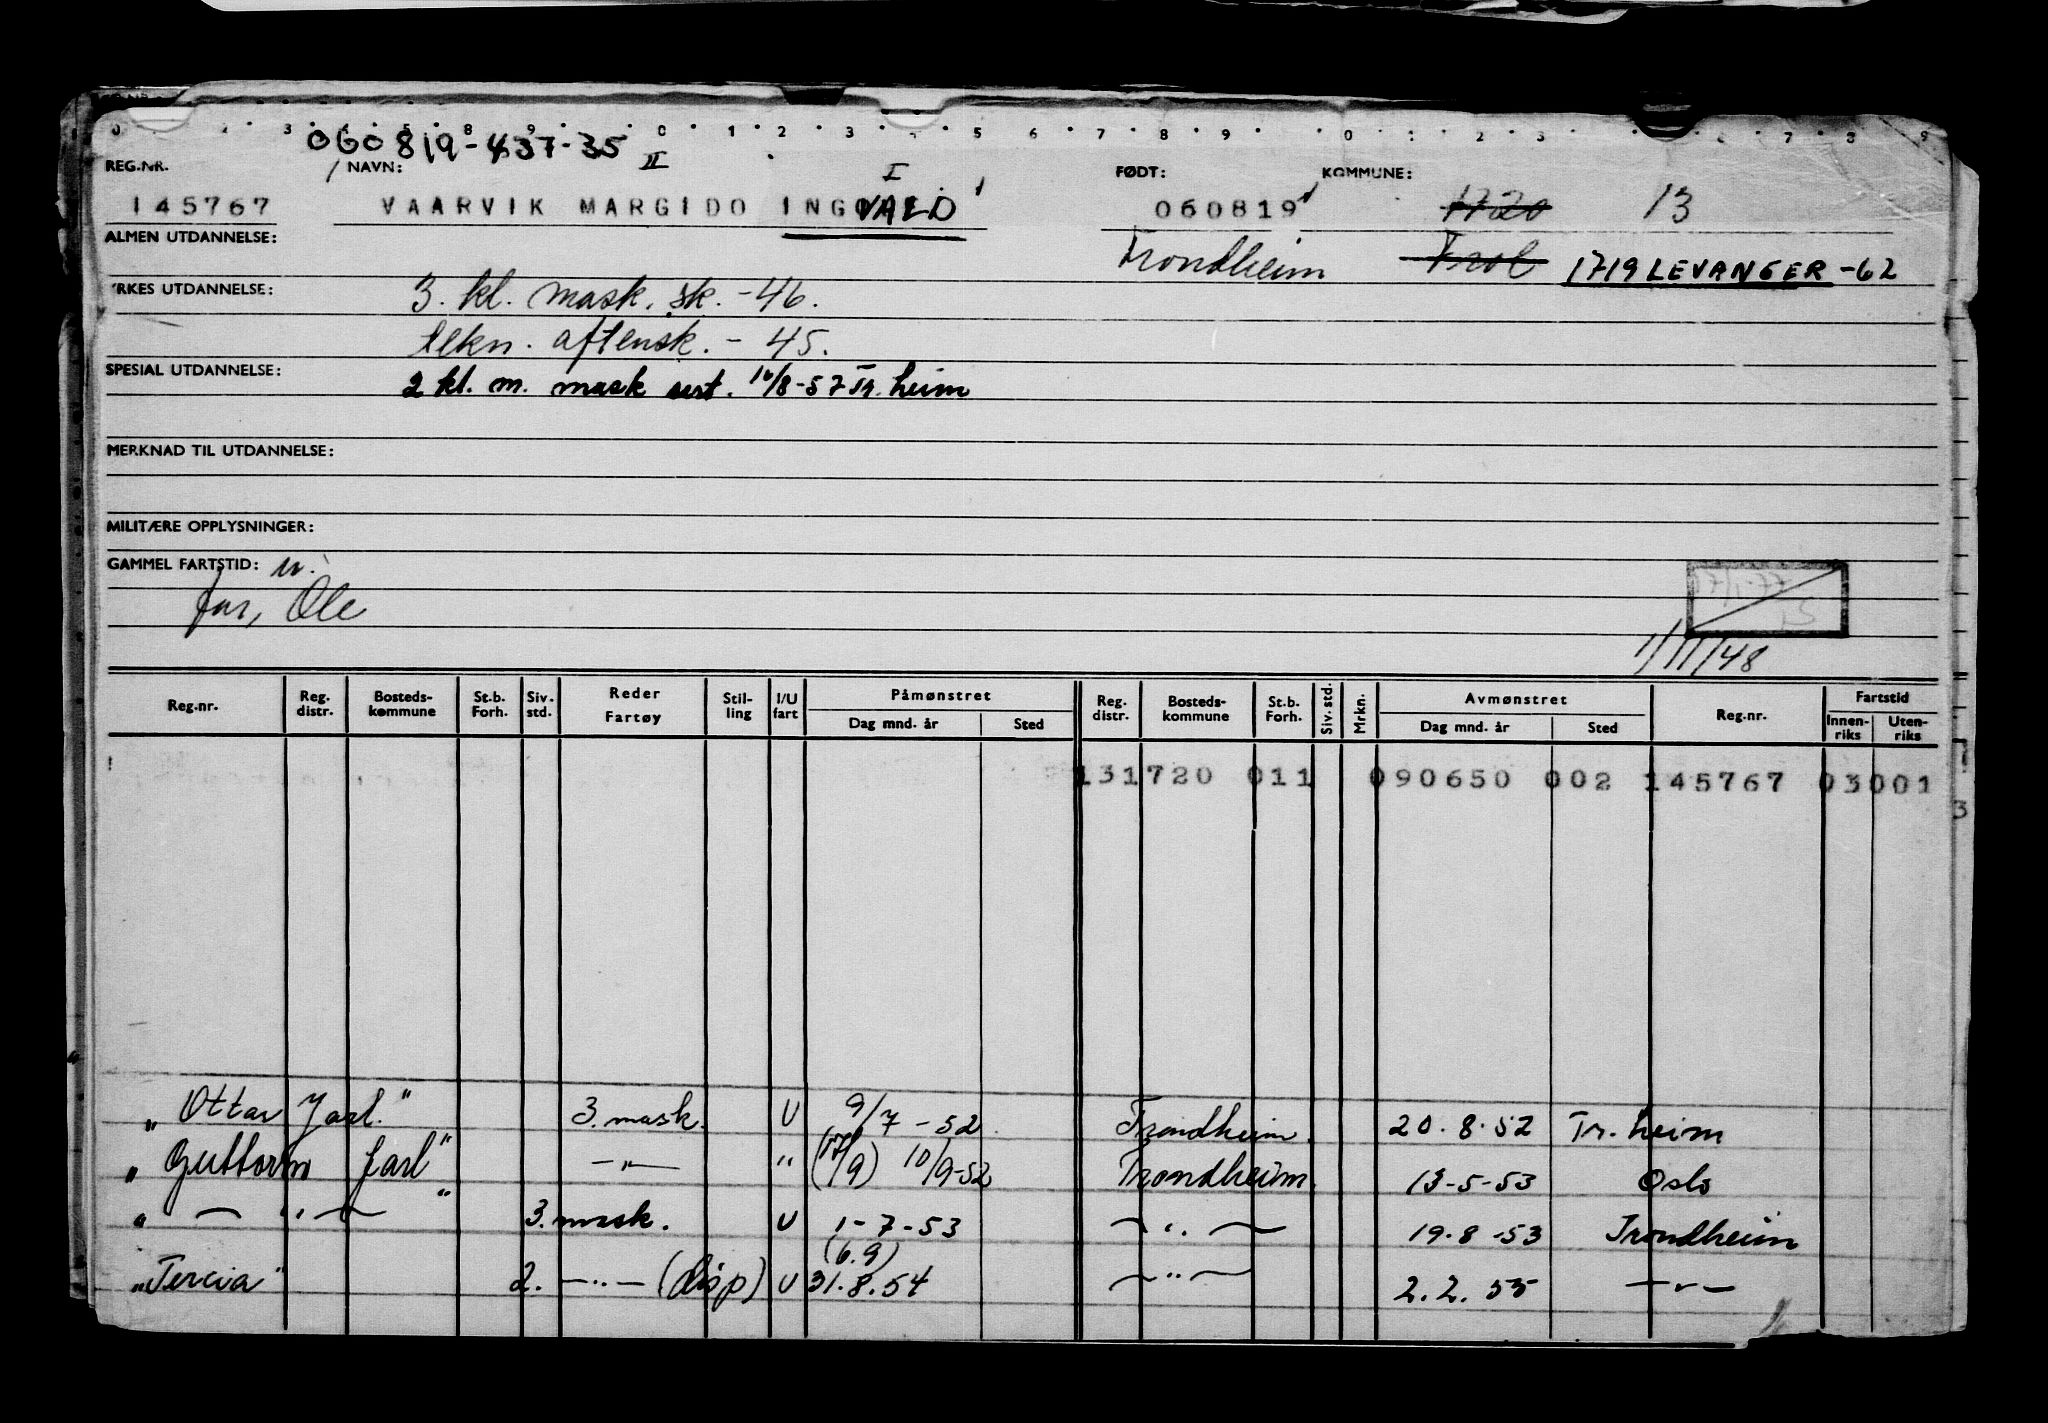 060819-437-35
REG.NR. NAVN: II I FØDT: KOMMUNE:
145767 VAARVIK MARGIDO INGOVALD 060819 1720 13
ALMEN UTDANNELSE: Trondheim Frol 1719 LEVANGER -62
YRKES UTDANNELSE: 3. kl. mask. sk. -46.
tekn. aftensk. - 45.
SPESIAL UTDANNELSE: 2 kl. m. mask sert. 16/8-57 Tr. heim
MERKNAD TIL UTDANNELSE:
MILITÆRE OPPLYSNINGER:
GAMMEL FARTSTID: u.
far, Ole
1/11/48
Reg.nr. Reg. distr. Bosteds-kommune St.b. Forh. Siv. std. Reder Fartøy Stil-ling I/U fart Påmønstret Dag mnd. år Sted Reg. distr. Bosteds-kommune St.b. Forh. Siv. std. Mrkn. Avmønstret Dag mnd. år Sted Reg.nr. Fartstid Innen-riks Uten-riks
131720 011 090650 002 145767 03001
"Ottar Jarl." 3. mask. U 9/7 - 52 Trondheim. 20.8.52 Tr. heim
"Guttorm Jarl" — " — " (17/9) 10/9-52 Trondheim. 13-5-53 Oslo
" — " — " 3. mask. U 1-7-53 — " — 19.8-53 Trondheim
(6.9)
"Tercia" 2. — " — (disp) U 31.8.54 — " — 2.2.55 — " —